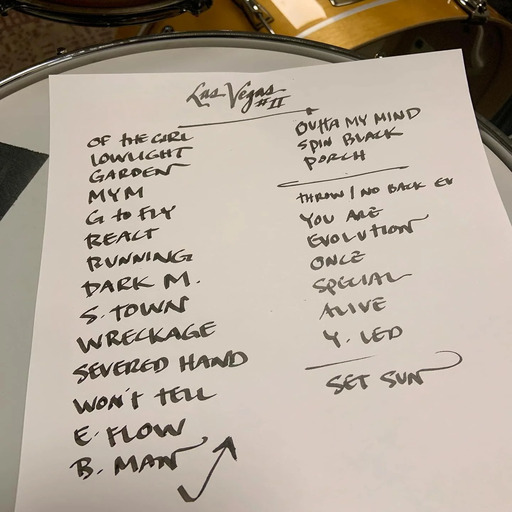 Las Vegas
#II
OF THE GIRL
LOWLIGHT
GARDEN
MYM
G to FLY
REACT
RUNNING
DARK M.
S. TOWN
WRECKAGE
SEVERED HAND
WON'T TELL
E. FLOW
B. MAN
OUTTA MY MIND
SPIN BLACK
PORCH
THROW / NO BACK EV
YOU ARE
EVOLUTION
ONCE
SPECIAL
ALIVE
Y. LED
SET SUN